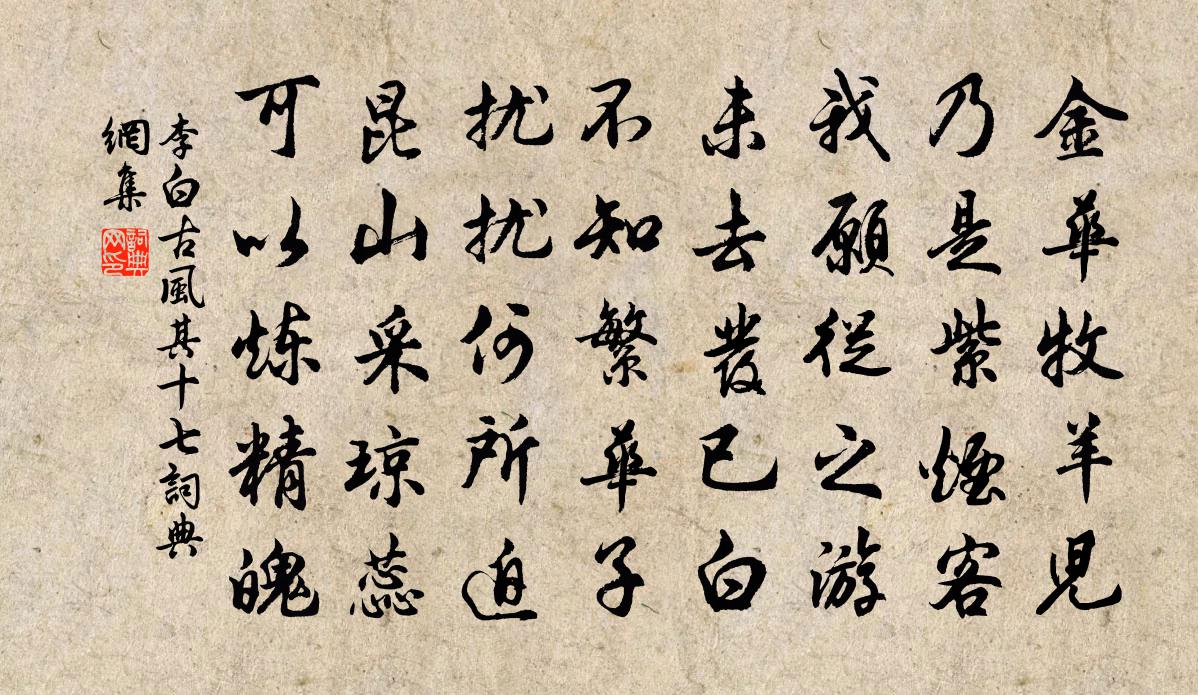 金華牧羊兒
乃是紫煙客
我願從之游
未去發已白
不知繁華子
扰扰何所迫
昆山采琼蕊
可以炼精魄
李白古風其十七詞典
網集
詞典
网印